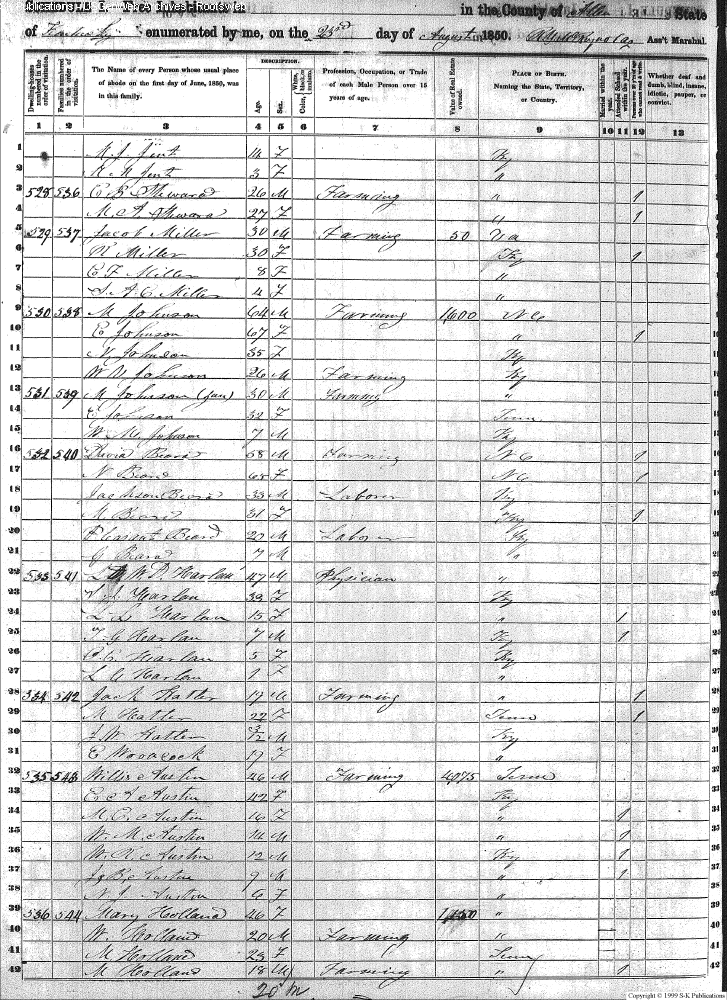 Publications USGenWeb Archives - Rootsweb
in the County of Allen State
of Kentucky enumerated by me, on the 23rd day of August 1850. Ass't Marshal.
Dwelling-houses numbered in the order of visitation.
Families numbered in the order of visitation.
The Name of every Person whose usual place of abode on the first day of June, 1850, was in this family.
DESCRIPTION.
Age.
Sex.
White, black, or mulatto.
Color
Profession, Occupation, or Trade of each Male Person over 15 years of age.
Value of Real Estate owned.
PLACE OF BIRTH. Naming the State, Territory, or Country.
Married within the year.
Attended School within the year.
Whether deaf and dumb, blind, insane, idiotic, pauper, or convict.
1 2 3 4 5 6 7 8 9 10 11 12 13
1 14 F Ky 1
2 3 F " 2
3 528 536 26 M Farming " 1 3
4 27 F " 1 4
5 529 537 Jacob Miller 30 M Farming 50 Va 5
6 Miller 30 F Ky 1 6
7 E F Miller 8 F " 7
8 S. A. C. Miller 4 F " 8
9 530 538 M Johnson 64 M Farming 1,600 NC 9
10 E Johnson 67 F " 1 10
11 N Johnson 35 F Ky 11
12 Johnson 26 M Farming Ky 12
13 531 539 M Johnson (Jun) 30 M Farming " 13
14 E Johnson 32 F Tenn 14
15 W. M. Johnson 7 M Ky 15
16 532 540 Beard 58 M Farming NC 1 16
17 N Beard 65 F NC 1 17
18 Jackson Beard 33 M Laborer Ky 18
19 M. Beard 31 F Ky 1 19
20 Pleasant Beard 20 M Laborer Ky 20
21 G Beard 7 M " 21
22 533 541 W. P. Harlan 47 M Physician " 22
23 Harlan 39 F Ky 23
24 L. L. Harlan 15 F " 1 24
25 T. G Harlan 7 M Ky 1 25
26 Harlan 5 F Ky 26
27 L G Harlan 1 F " 27
28 534 542 Jack Hatler 19 M Farming " 1 28
29 M Hatler 22 F Tenn 1 29
30 J. W. Hatler 3/12 M Ky 30
31 E Woodcock 17 F " 31
32 535 543 Willis Austin 46 M Farming 4,075 Tenn 32
33 E. A Austin 42 F Ky 33
34 M. E. Austin 16 F " 1 34
35 W. M. Austin 14 M " 1 35
36 W. R. Austin 12 M Ky 1 36
37 J. B. Austin 9 M " 1 37
38 Austin 6 F " 38
39 536 544 Mary Holland 46 F " 39
40 W. Holland 20 M Farming " 40
41 M Holland 23 F Tenn 41
42 M Holland 18 M Farming " 1 42
20 m
Copyright © 1999 S-K Publications